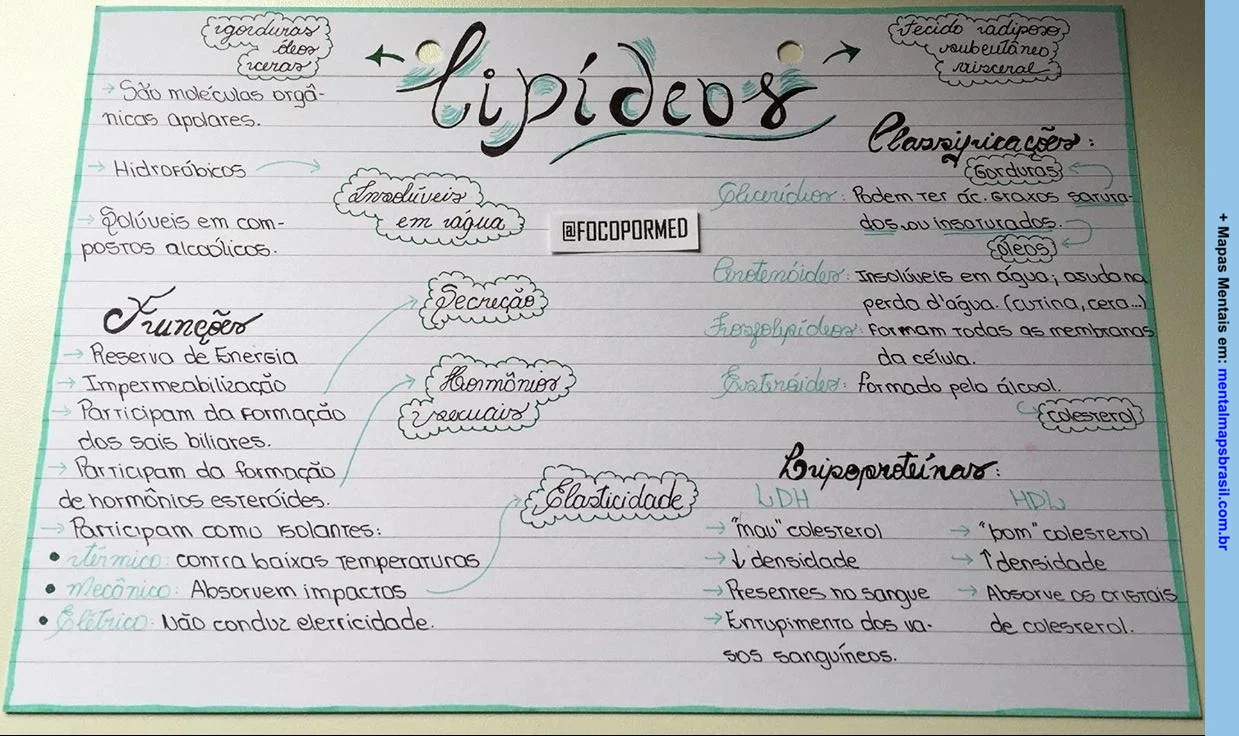 Lipídeos
gorduras
óleos
ceras
Tecido adiposo
subcutâneo
visceral
→ São moléculas orgâ-
nicas apolares.
→ Hidrofóbicos
Insolúveis
em água
→ Solúveis em com-
postos alcoólicos.
@FOCOPORMED
Funções
→ Reserva de Energia
→ Impermeabilização
Secreção
→ Participam da formação
dos sais biliares.
→ Participam da formação
de hormônios esteróides.
Hormônios
sexuais
→ Participam como isolantes:
• térmico: contra baixas temperaturas
• mecânico: Absorvem impactos
Elasticidade
• Elétrico: Não conduz eletricidade.
Classificações:
Gorduras
Glicerídios: Podem ter ác. graxos satura-
dos ou insaturados.
óleos
Carotenóides: Insolúveis em água; ajuda na
perda d'água. (cutina, cera...)
Fosfolipídeos: Formam todas as membranas
da célula.
Esteróides: formado pelo álcool.
colesterol
Lipoproteínas:
LDH
→ "mau" colesterol
→ ↓ densidade
→ Presentes no sangue
→ Entupimento dos va-
sos sanguíneos.
HDL
→ "bom" colesterol
→ ↑ densidade
→ Absorve os cristais
de colesterol.
+ Mapas Mentais em: mentalmapsbrasil.com.br